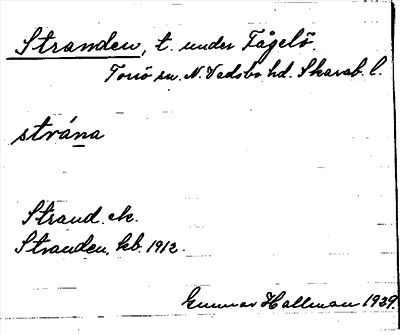 Stranden, t. under Fågelö.
Torsö sn. N. Vadsbo hd. Skarab. l.
strá́na
Strand. ek.
Stranden, kb. 1912.
Gunnar Hallman 1939